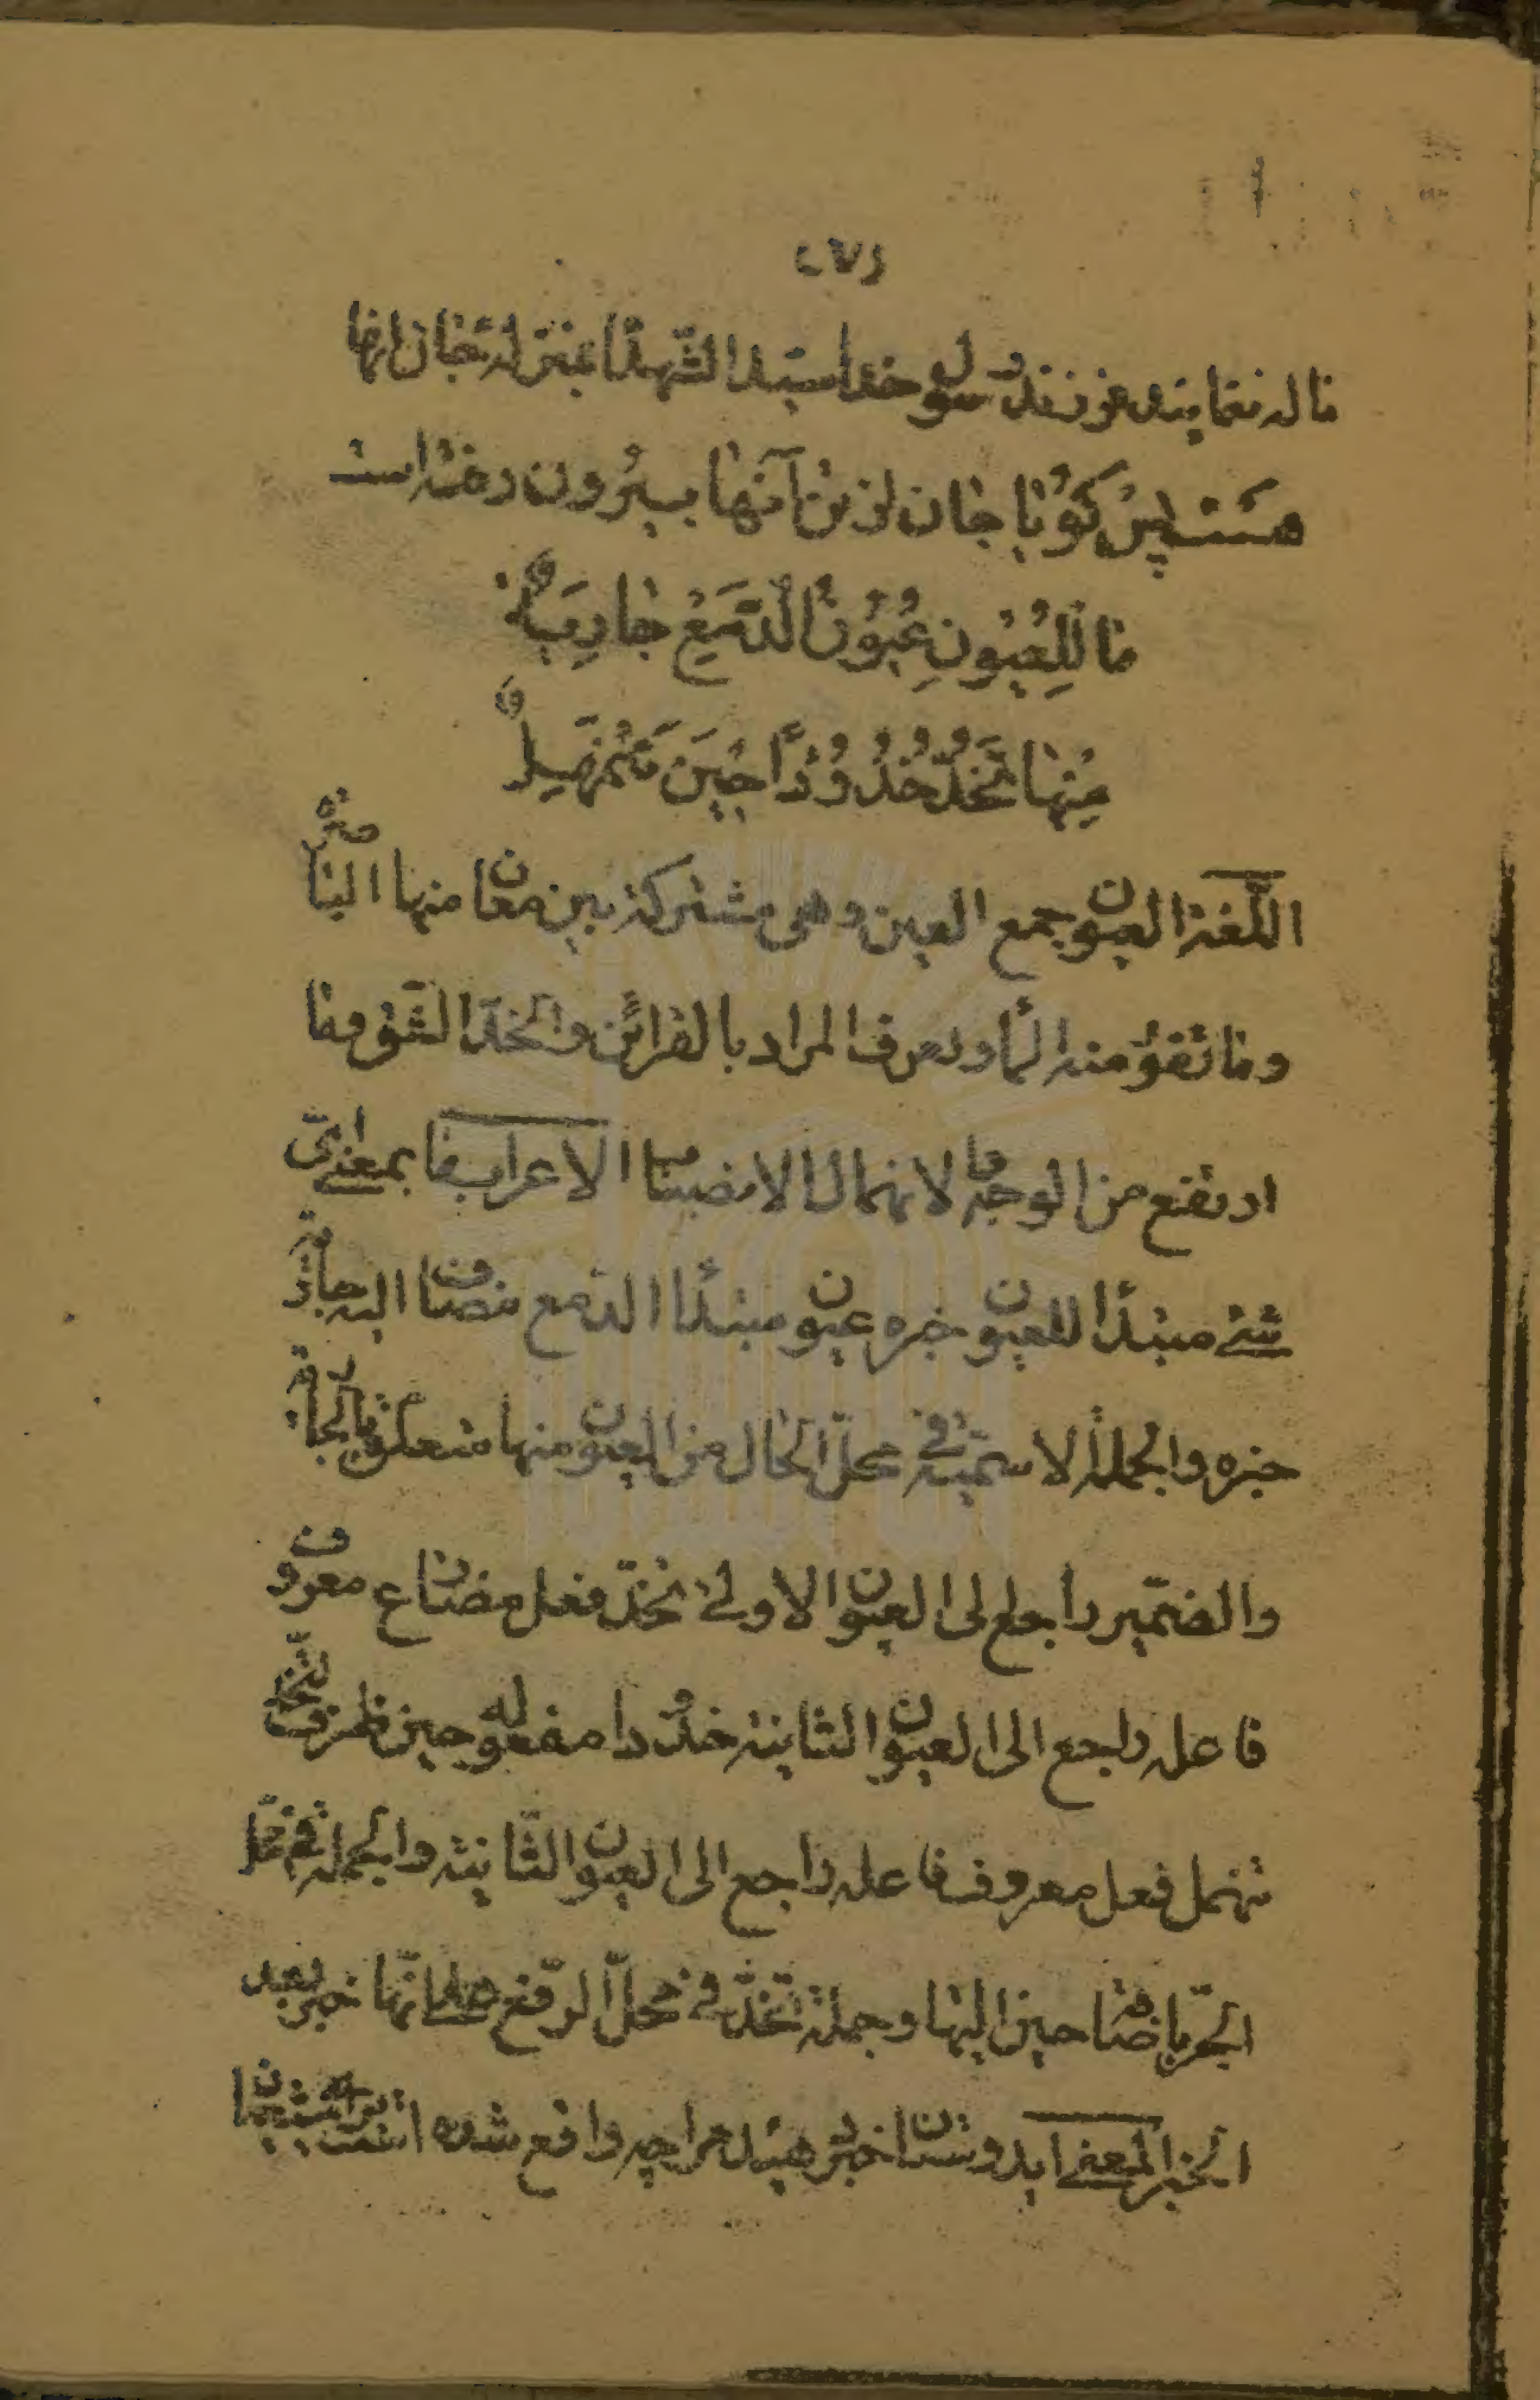 (٧)
ناله نمایند فرزند رسول خدا سید الشهدا بمنزله جان انها
هست پس گویا جان از تن آنها بیرون رفته است
مَا لِلْعُیُونِ عُیُونُ الدَّمْعِ جَارِیَةٌ
مِنْهَا تَخُدُّ خُدُوْدًا حِیْنَ تَنْهَمِلُ
اللّغة العیون جمع العین وهی مشترکة بین معان منها الباصرة
وما تفور منه الماء ویعرف المراد بالقرائن والخدّ الشّق وما
ارتفع من الوجه الانهمال الانصباب الاعراب ما بمعنی ایّ
شئ مبتدأ للعیون خبره عیون مبتدأ الدّمع مضاف الیه جاریة
خبره والجملة الاسمیّة فی محلّ الحال من العیون منها متعلق بالجاریة
والضمّیر راجع الی العیون الاولی تخدّ فعل مضارع معروف
فاعله راجع الی العیون الثانیة خدودا مفعوله حین ظرف لتخدّ
تنهمل فعل معروف فاعله راجع الی العیون الثّانیة والجملة فی محلّ
الجرّ باضافة حین الیها وجملة تخدّ فی محلّ الرّفع علی انّها خبر بعد
الخبر المعنی ای دوستان خبر دهید مرا چه واقع شده است